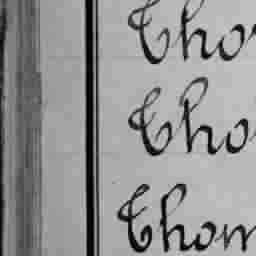 Thor
Tho
Thom